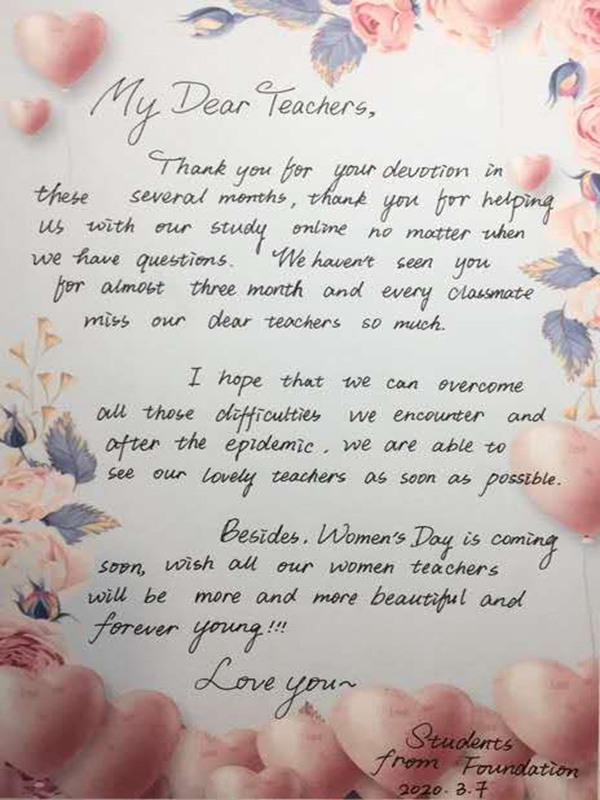 My Dear Teachers,
Thank you for your devotion in
these several months, thank you for helping
us with our study online no matter when
we have questions. We haven't seen you
for almost three month and every classmate
miss our dear teachers so much.
I hope that we can overcome
all those difficulties we encounter and
after the epidemic, we are able to
see our lovely teachers as soon as possible.
Besides, Women's Day is coming
soon, wish all our women teachers
will be more and more beautiful and
forever young!!!
Love you~
Students
from Foundation
2020.3.7